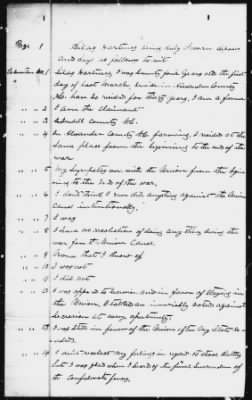 Page 1 Silas Hartness being duly sworn deposes
and says as follows to wit
Silas Hartness, I was years old the first
day of last March, reside in Alexander County
N.C. have so resided for thirty years, I am a farmer
" " " 2 I am the claimant
" " " 3 Iredell County N.C.
" " " 4 In Alexander County N.C. farming, I resided at the
same place from the beginning to the end of the
war
" " " 5 My sympathies were with the Union from the begin-
ing to the end of the war.
" " " 6 I don't think I ever did anything against the Union
cause intentionally.
" " " 7 I was
" " " 8 I have no recollection of doing any thing during the
war for the Union Cause.
" " " 9 None that I know of
" " " 10 I was not
" " " 11 I did not
" " " 12 I was opposed to secession and in favor of staying in
the Union, I talked and invariably voted against
secession at every opportunity.
" " " 13 I was still in favor of the Union after the State
" " " 14 I don't recollect my feelings in regard to those battles
but I was glad when I heard of the final surrender of
the Confederate forces,